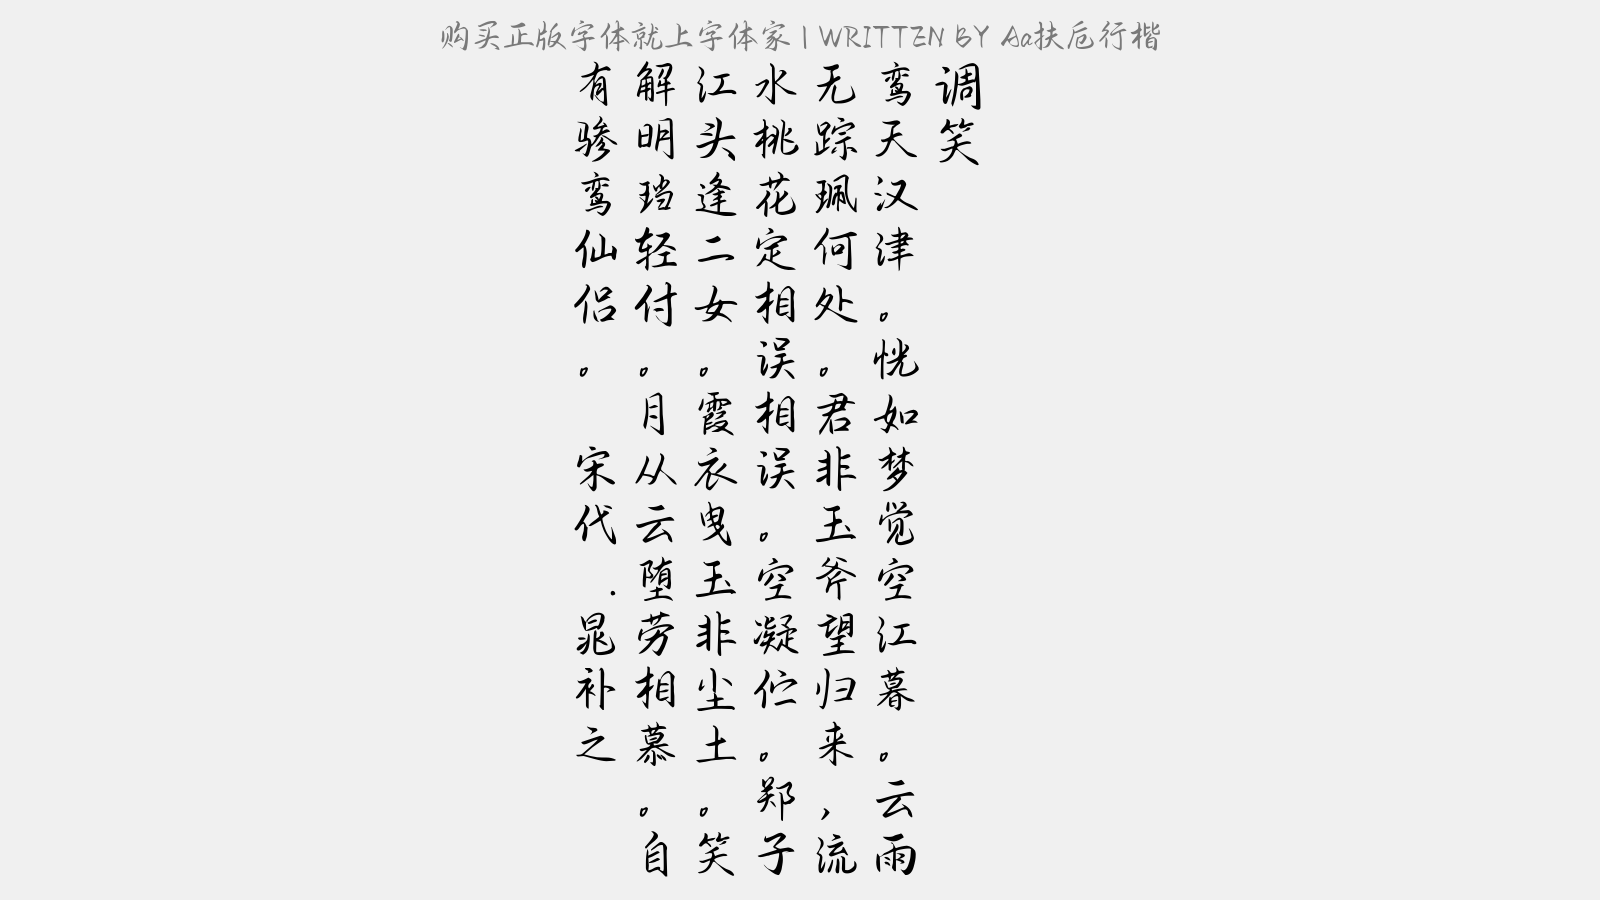 购买正版字体就上字体家 | WRITTEN BY Aa扶卮行楷
调笑
鸾天汉津。恍如梦觉空江暮。云雨
无踪珮何处。君非玉斧望归来，流
水桃花定相误相误。空凝伫。郑子
江头逢二女。霞衣曳玉非尘土。笑
解明珰轻付。月从云堕劳相慕。自
有骖鸾仙侣。 宋代.晁补之